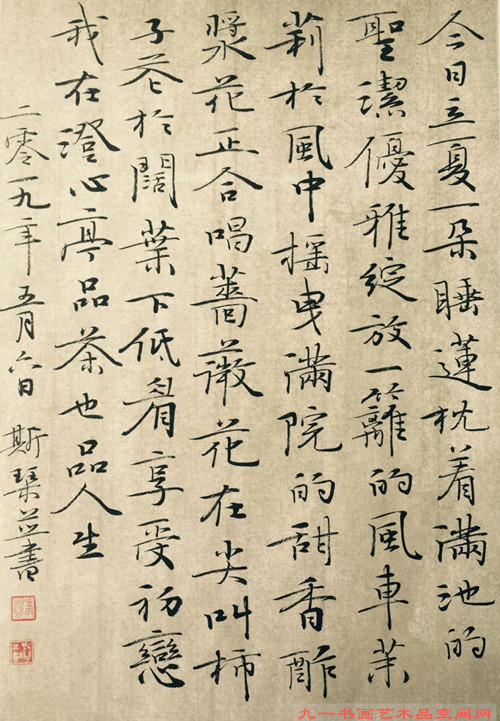 今日立夏一朵睡蓮枕着滿池的
聖潔優雅綻放一籬的風車茉
莉於風中摇曳滿院的甜香酢
漿花正合唱薔薇花在尖叫柿
子花於闊葉下低眉享受初戀
我在澄心亭品茶也品人生
二零一九年五月六日斯琹並書
九一书画艺术品空间网